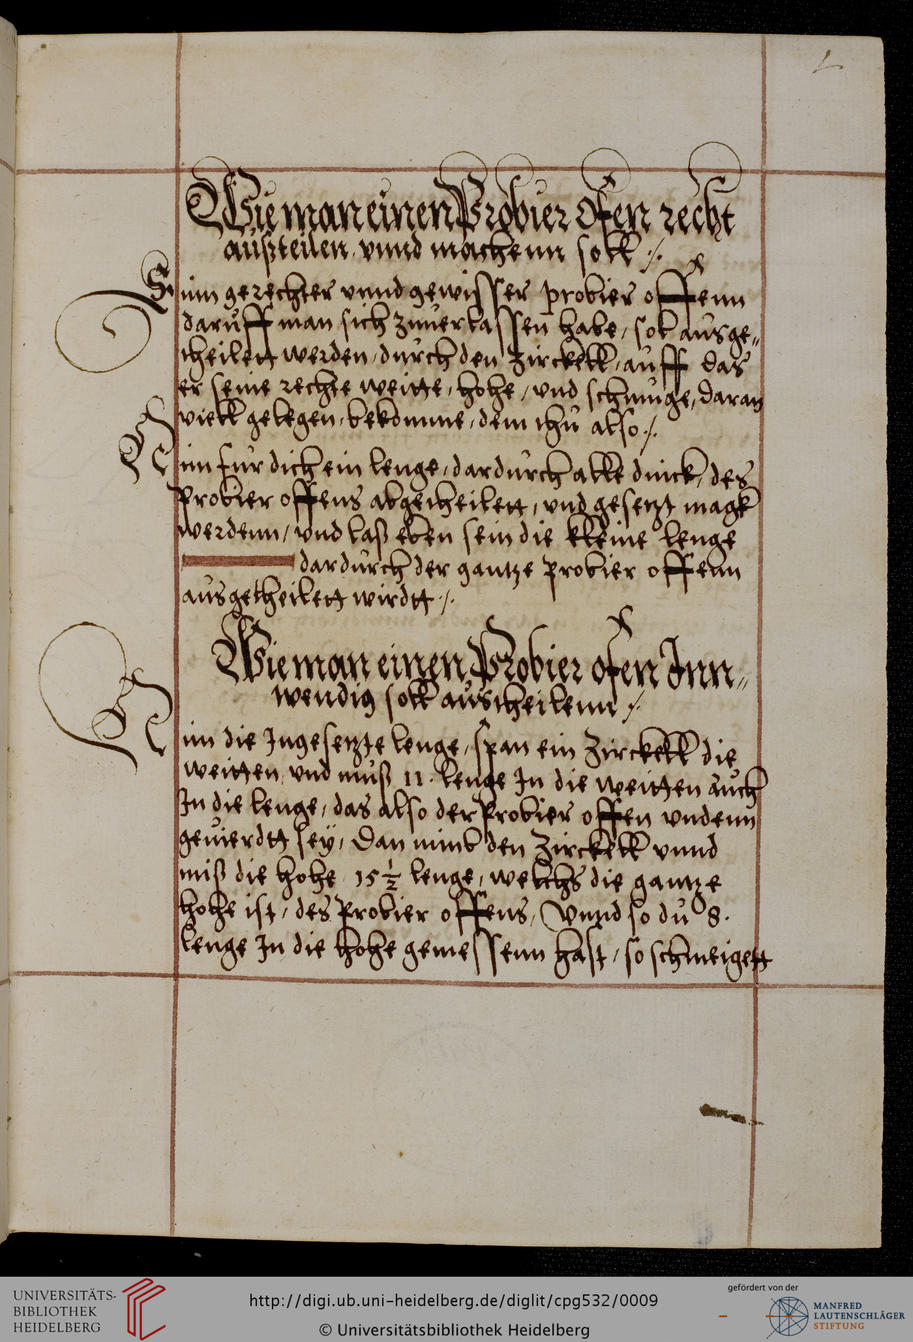 1
Wie man einen Probier ofen recht
außteilen vnnd machenn soll /.
Einn gerechter vnnd gewisser probier offenn
daruff man sich zuuerlassen habe, sol ausge„
theilett werden, durch den Zirckell, auff das
er seine rechte weitte, hohe, vnd schmuge, daran
viell gelegen, bekomme, dem thu also /.
Nim fur dich ein lenge, dardurch alle dinck, des
Probier offens abgetheilett, vnd gesetzt magk
werdenn, vnd laß eben sein die kleine lenge
dardurch der gantze probier offenn
ausgetheilett wirdtt /.
Wie man einen Probier ofen Inn„
wendig soll austheilenn /.
Nim die Ingesetzte lenge, span ein Zirckell die
weitten, vnd muß 11. lenge In die weitten auch
In die lenge, das also der Probier offen vndenn
geuierdtt sey, Dan nimb den Zirckell vnnd
miß die hohe 15 1/2 lenge, welchs die gantze
hohe ist, des Probier offens, Vnnd so du 8.
lenge In die hohe gemessenn hast, so schmeigett
UNIVERSITÄTS-
BIBLIOTHEK
HEIDELBERG
http://digi.ub.uni-heidelberg.de/diglit/cpg532/0009
© Universitätsbibliothek Heidelberg
gefördert von der
MANFRED
LAUTENSCHLÄGER
STIFTUNG